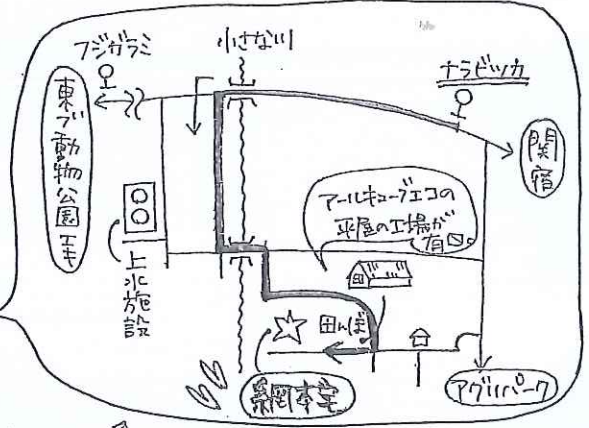 フジガラミ
小さな川
ナラビツカ
東ブ動物公園エキ
関宿
アールキューブエコの
平屋の工場が
上水施設
田んぼ
本宅
アグリパーク